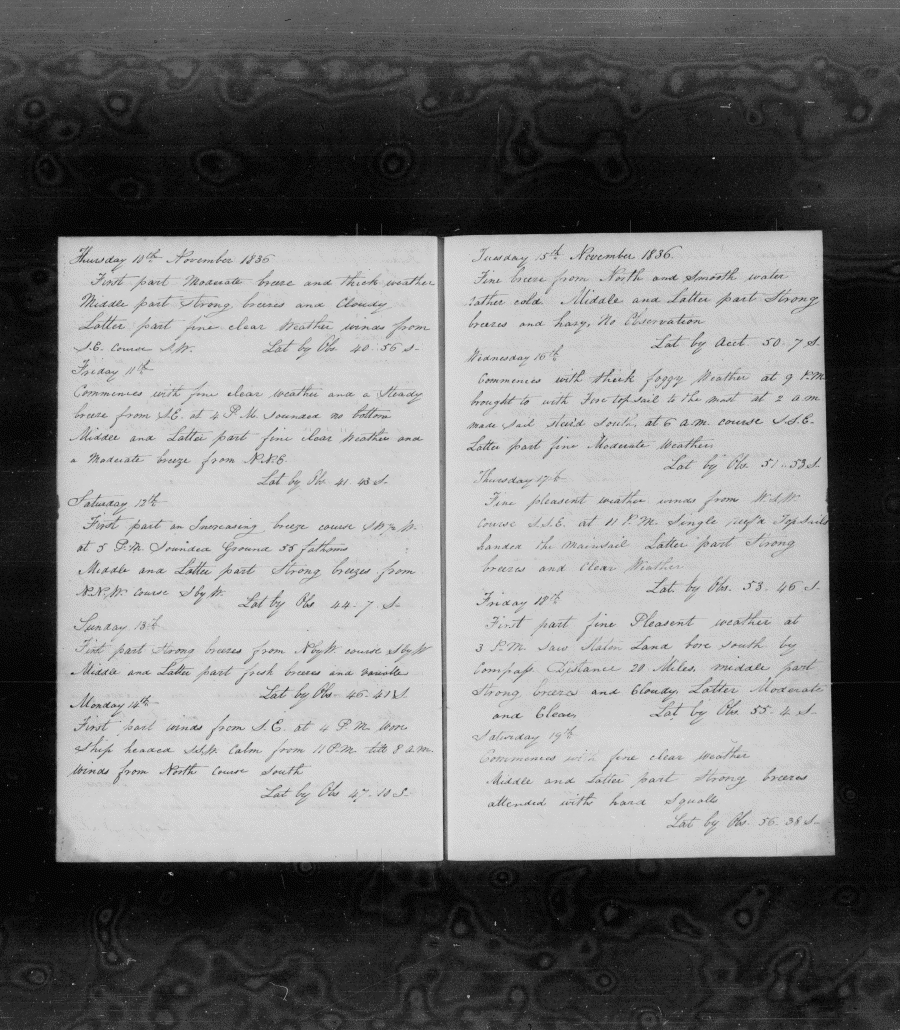 Thursday 10th November 1836
First part Moderate breeze and thick weather
Middle part Strong breezes and Cloudy
Latter part fine clear Weather winds from
S.E. course S.W. Lat by Obs 40-56 S-
Friday 11th
Commences with fine clear weather and a Steady
breeze from S.E. at 4 P.M. Sounded no bottom
Middle and Latter part fine clear Weather and
a Moderate breeze from N.N.E.
Lat by Obs. 41-43 S-
Saturday 12th
First part an Increasing breeze course SW by W.
at 5 P.M. Sounded Ground 55 fathoms
Middle and Latter part Strong breezes from
N.N.W. course S by W. Lat by Obs 44-7 S-
Sunday 13th
First part Strong breezes from N by W course S by W
Middle and Latter part fresh breezes and variable
Lat by Obs- 46-41 S.
Monday 14th
First part winds from S.E. at 4 P.M. Wore
Ship headed SSW. Calm from 11 P.M. till 8 a.m.
Winds from North Course South
Lat by Obs 47-10 S-
Tuesday 15th November 1836
Fine breeze from North and Smooth water
rather cold. Middle and Latter part Strong
breezes and hazy, No Observation
Lat by acct 50-7 S.
Wednesday 16th
Commences with thick foggy Weather at 9 P.M.
brought to with Fore topsail to the mast at 2 a.m
made Sail Steer'd South, at 6 a.m. course S.S.E-
Latter part fine Moderate Weather
Lat by Obs. 51-53 S-
Thursday 17th
Fine pleasent weather winds from W.S.W.
Course S.S.E. at 11 P.M. Single reef'd TopSails
handed the mainsail Latter part Strong
breezes and Clear Weather
Lat. by Obs. 53.46 S-
Friday 18th
First part fine Pleasent weather at
3 P.M. Saw Staten Land bore south by
Compass Distance 20 Miles. middle part
Strong breeze and Cloudy, Latter Moderate
and Clear Lat by Obs. 55-4 S-
Saturday 19th
Commences with fine clear weather
Middle and Latter part Strong breezes
attended with hard Squalls
Lat by Obs. 56-38 S-